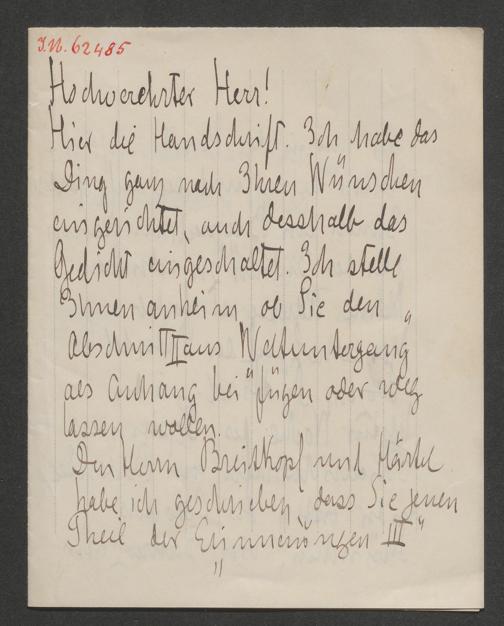 I.N. 62485
Hochverehrter Herr!
Hier die Handschrift. Ich habe das
Ding ganz nach Ihren Wünschen
eingerichtet, auch desshalb das
Gedicht eingeschaltet. Ich stelle
Ihnen anheim ob Sie den
Abschnitt II aus „Weltuntergang“
als Anhang beifügen oder weg
lassen wollen.
Den Herrn Breitkopf und Härtel
habe ich geschrieben dass Sie jenen
Theil der „Erinnerungen III“